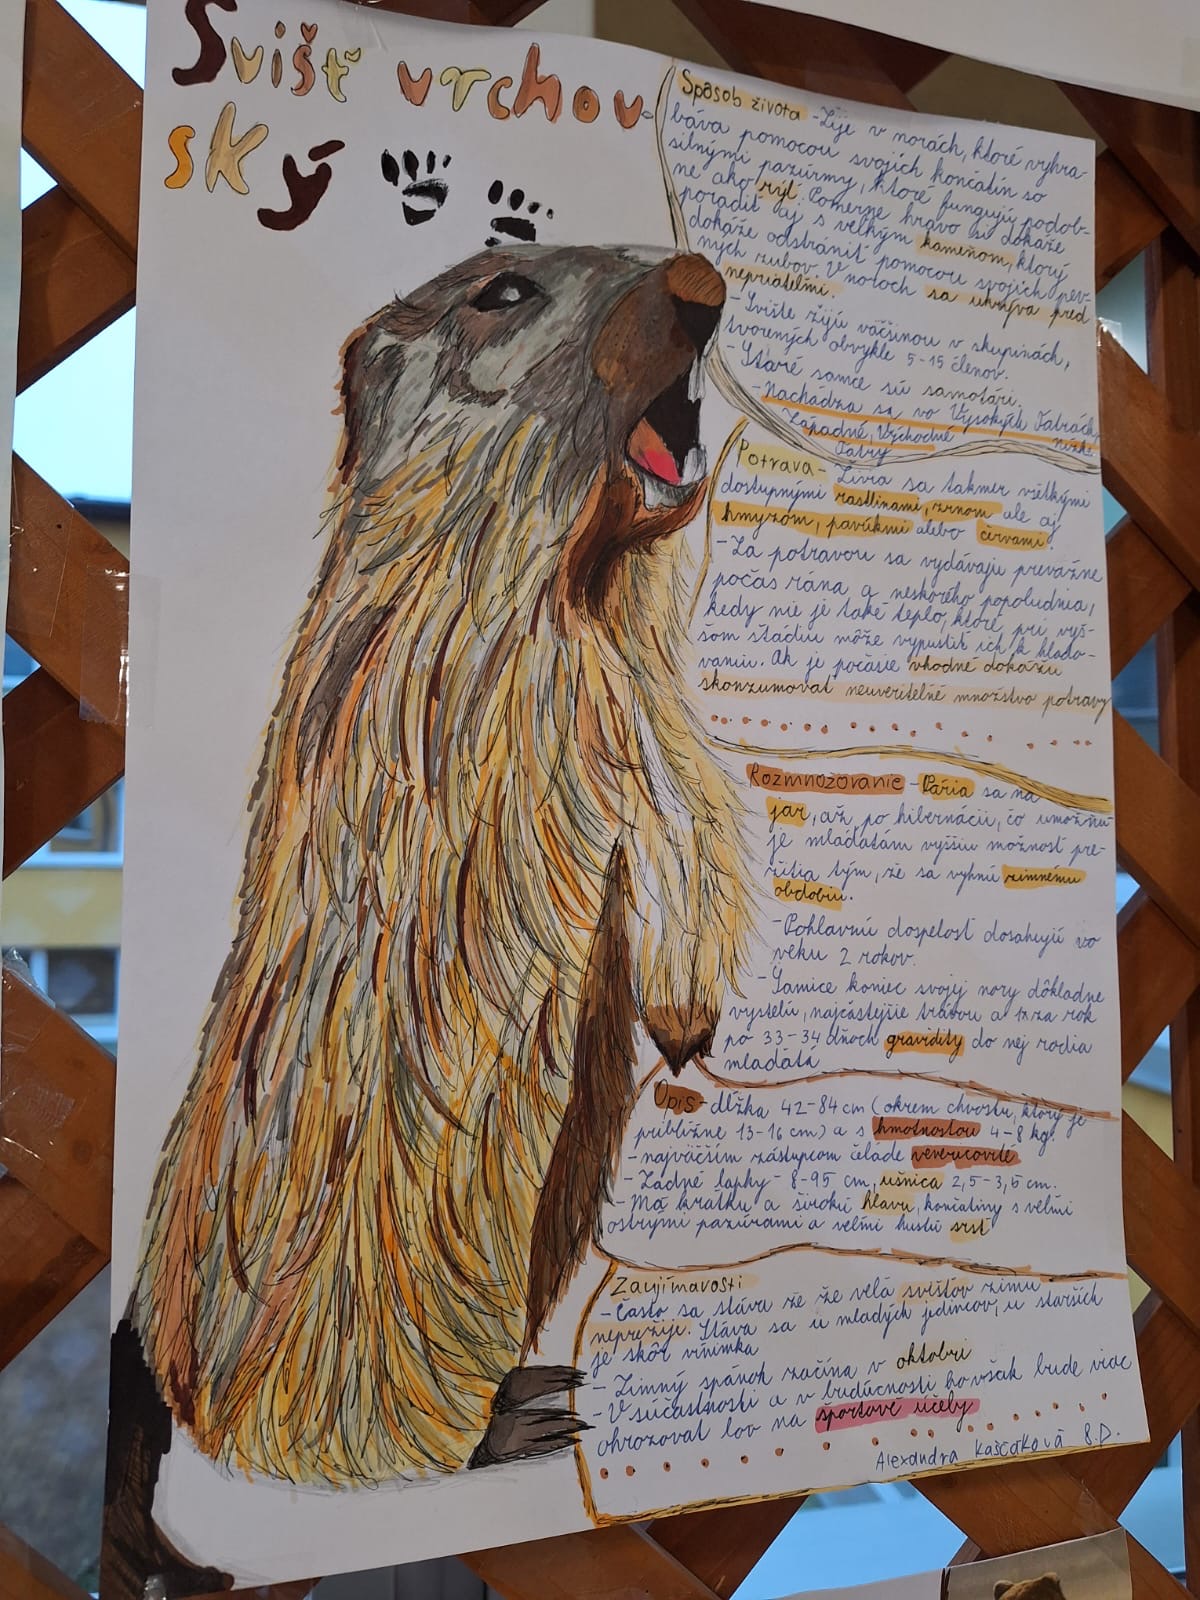 Svišť vrchov-
ský
Spôsob života - Žije v norách, ktoré vyhra-
báva pomocou svojich končatín so
silnými pazúrmy, ktoré fungujú podob-
ne ako rýľ. Pomerne hravo si dokáže
poradiť aj s veľkým kameňom, ktorý
dokáže odstrániť pomocou svojich pev-
ných zubov. V norách sa ukrýva pred
nepriateľmi.
- Svište žijú väčšinou v skupinách,
tvorených obvykle 5-15 členov.
- Staré samce sú samotári.
- Nachádza sa vo Vysokých Tatrách,
Západné, Východné Nízke
Tatry
Potrava - Živia sa takmer všetkými
dostupnými rastlinami, zrnom ale aj
hmyzom, pavúkmi alebo červami.
- Za potravou sa vydávajú prevažne
počas rána a neskorého popoludnia,
kedy nie je také teplo, ktoré pri vyš-
šom štádiu môže vypustiť ich k hlado-
vaniu. Ak je počasie vhodné dokážu
skonzumovať neuveriteľné množstvo potravy
Rozmnožovanie - Pária sa na
jar, až po hibernácii, čo umožňu
je mláďatám vyššiu možnosť pre-
žitia tým, že sa vyhnú zimnému
obdobiu.
- Pohlavnú dospelosť dosahujú vo
veku 2 rokov.
- Samice koniec svojej nory dôkladne
vystelú, najčastejšie trávou a 1x za rok
po 33-34 dňoch gravidity do nej rodia
mláďatá
Opis - dĺžka 42-84 cm (okrem chvostu, ktorý je
približne 13-16 cm) a s hmotnosťou 4-8 kg.
- najväčším zástupcom čeľade vevericovité
- Zadné labky - 8-95 cm, ušnica 2,5-3,5 cm.
- Má krátku a širokú hlavu, končatiny s veľmi
ostrými pazúrami a veľmi hustú srsť
Zaujímavosti
- Často sa stáva že že veľa svišťov zimu
neprežije. Stáva sa u mladých jedincov, u starších
je skôr výnimka
- Zimný spánok začína v októbri
- V súčastnosti a v budúcnosti ho však bude viac
ohrozovať lov na športové účely
Alexandra Kaščáková 8.D.